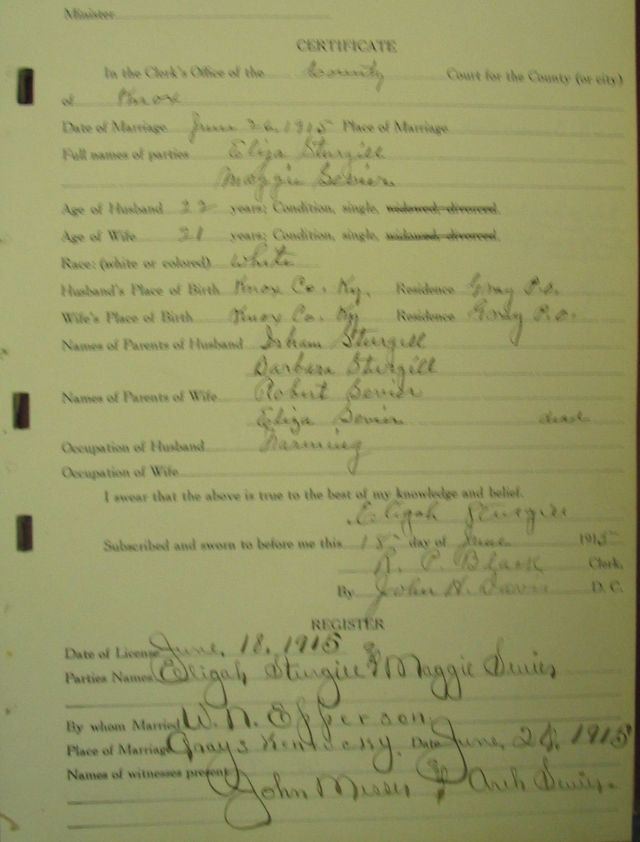 Minister
CERTIFICATE
In the Clerk's Office of the County Court for the County (or city)
of Knox
Date of Marriage June 26, 1915 Place of Marriage
Full names of parties Eliza Sturgill
Maggie Sevier
Age of Husband 22 years; Condition, single, widowed, divorced
Age of Wife 21 years; Condition, single, widowed, divorced
Race: (white or colored) White
Husband's Place of Birth Knox Co. Ky. Residence Gray P.O.
Wife's Place of Birth Knox Co. Ky Residence Gray P.O.
Names of Parents of Husband Isham Sturgill
Barbara Sturgill
Names of Parents of Wife Robert Sevier
Eliza Sevier dead
Occupation of Husband Farming
Occupation of Wife
I swear that the above is true to the best of my knowledge and belief.
Eligah Sturgill
Subscribed and sworn to before me this 18 day of June 1915
R. P. Black Clerk.
By John H. Davis D. C.
REGISTER
Date of License June, 18, 1915
Parties Names Eligah Sturgill & Maggie Sevier
By whom Married W. N. Epperson
Place of Marriage Grays Kentucky. Date June, 1915
Names of witnesses present John & Arch Sevier